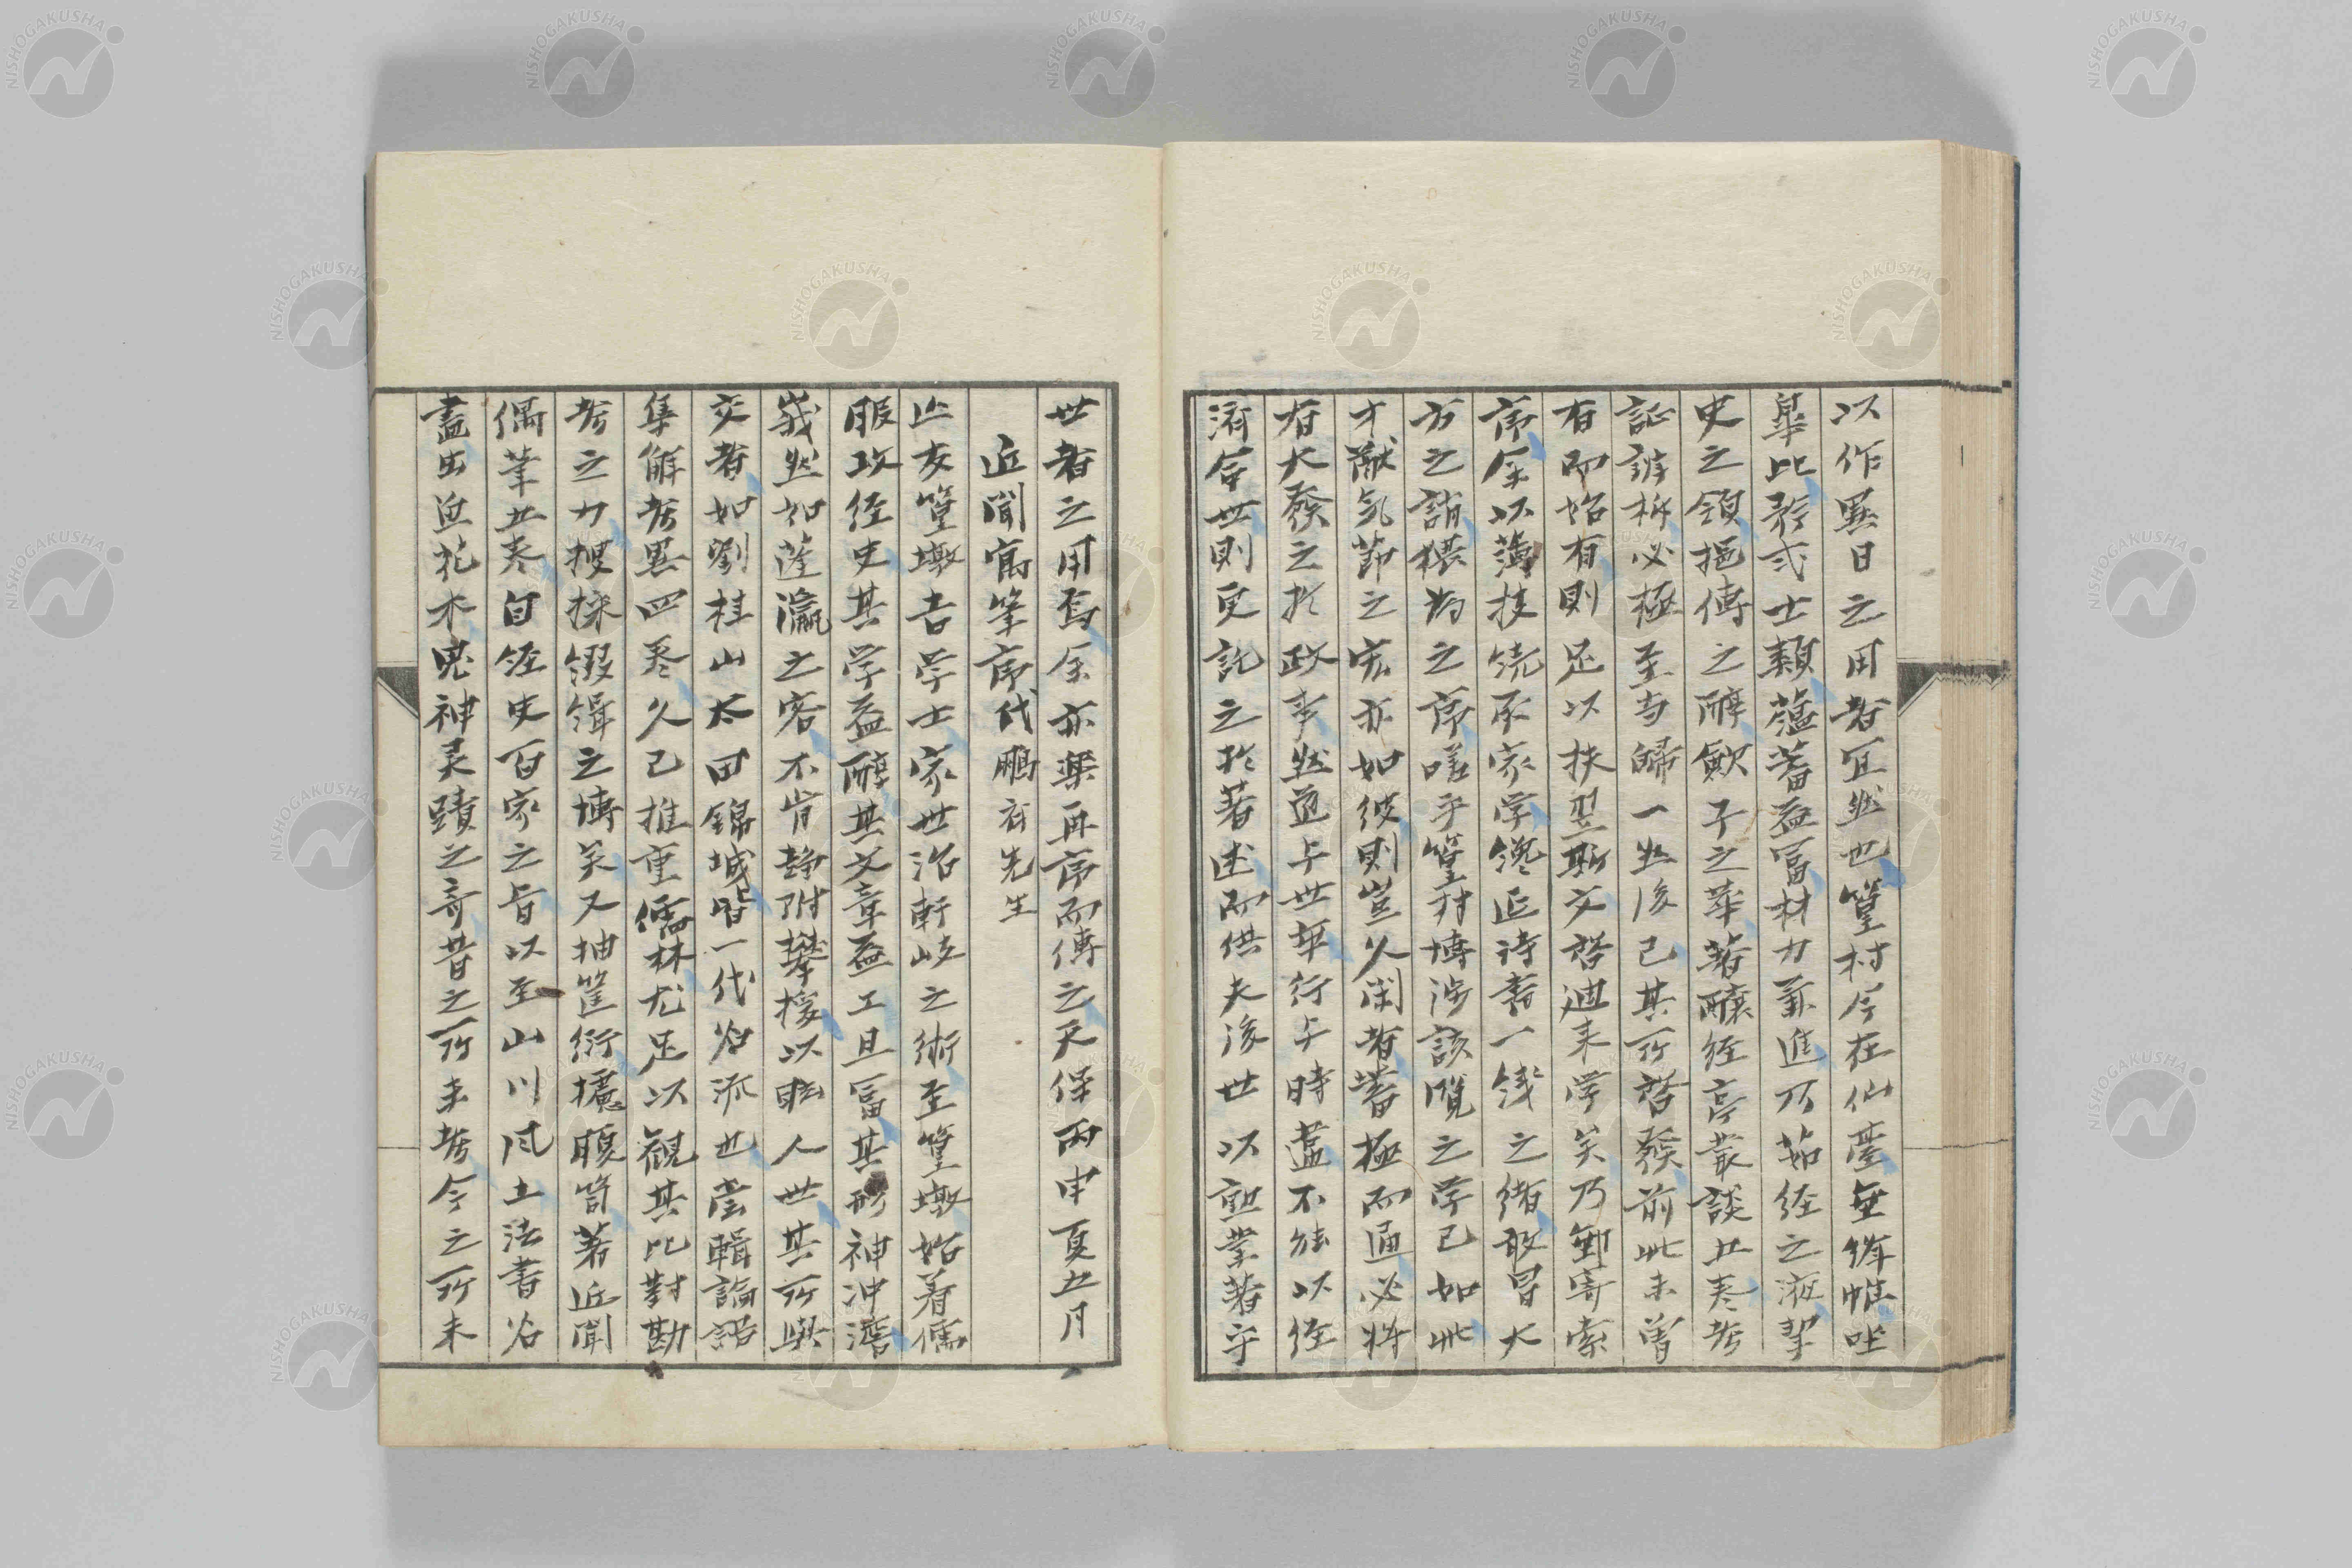 以作異日之用者宜然也篁村今在仙臺坐絳帷坐
皐比矜式士類蘊蓄益富材力兼進乃茹經之液挈
史之領挹傳之醇歃子之華著釀經亭叢談五卷考
証辨析必極至当歸一然後已其所啓發前此未曽
有而始有則足以扶翌斯文啓迪来学矣乃郵寄索
序余以蕩技饒不家学纔延詩書一綫之緒敢冒大
方之誚猥為之序嗟乎篁村博渉該覧之学已如此
才猷気節之宏亦如彼則豈久閑者蓄極而通必将
有大發之於政事然道与世舉行与時藎不能以經
済

世則更託之於著述而供夫後世以

業著乎
世者之用焉余亦樂再序而傳之天保丙申夏五月
近聞寓筆序代鵬斎先生
亡友篁墩吉学士家世治軒岐之術至篁墩始着儒
服攻経史其学益醇其文章益工且富其形神沖澹
峩然如蓬瀛之客不肯趨附攀援以眩人世其所與
交者如劉桂山太田錦城皆一代名流也嘗輯論語
集解考異四卷久已推重儒林尤足以観其比對勘
考之力搜採綴緝之博矣又抽筐衍攄腹笥著近聞
偶筆五卷自經史百家之旨以至山川風土法書名
畫出迹花木鬼神灵蹟之奇昔之所未考今之所未